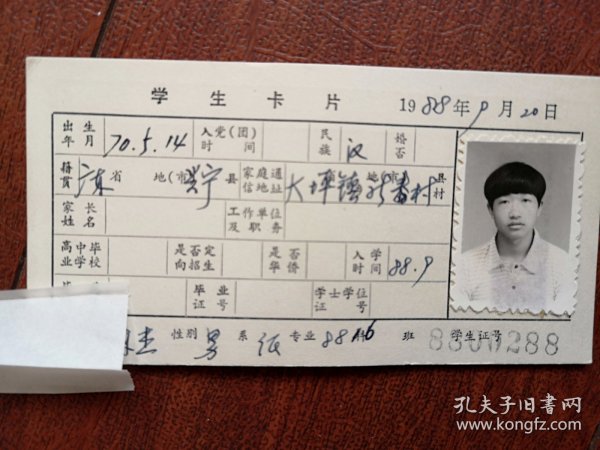 学生卡片 1988年9月20日
出生年月 70.5.14 入党(团)时间 民族 汉 婚否
籍贯 广东省 地(市) 兴宁县 家庭通信地址 大坪镇 地(市) 村 县村
家长姓名 工作单位及职务
高中毕业中学校 是否定向招生 是否华侨 入学时间 88.9
毕业证号 学士学位证号
杰 性别 男 系 专业 88 6 班 学生证号 8800288
孔夫子旧书网
www.kongfz.com